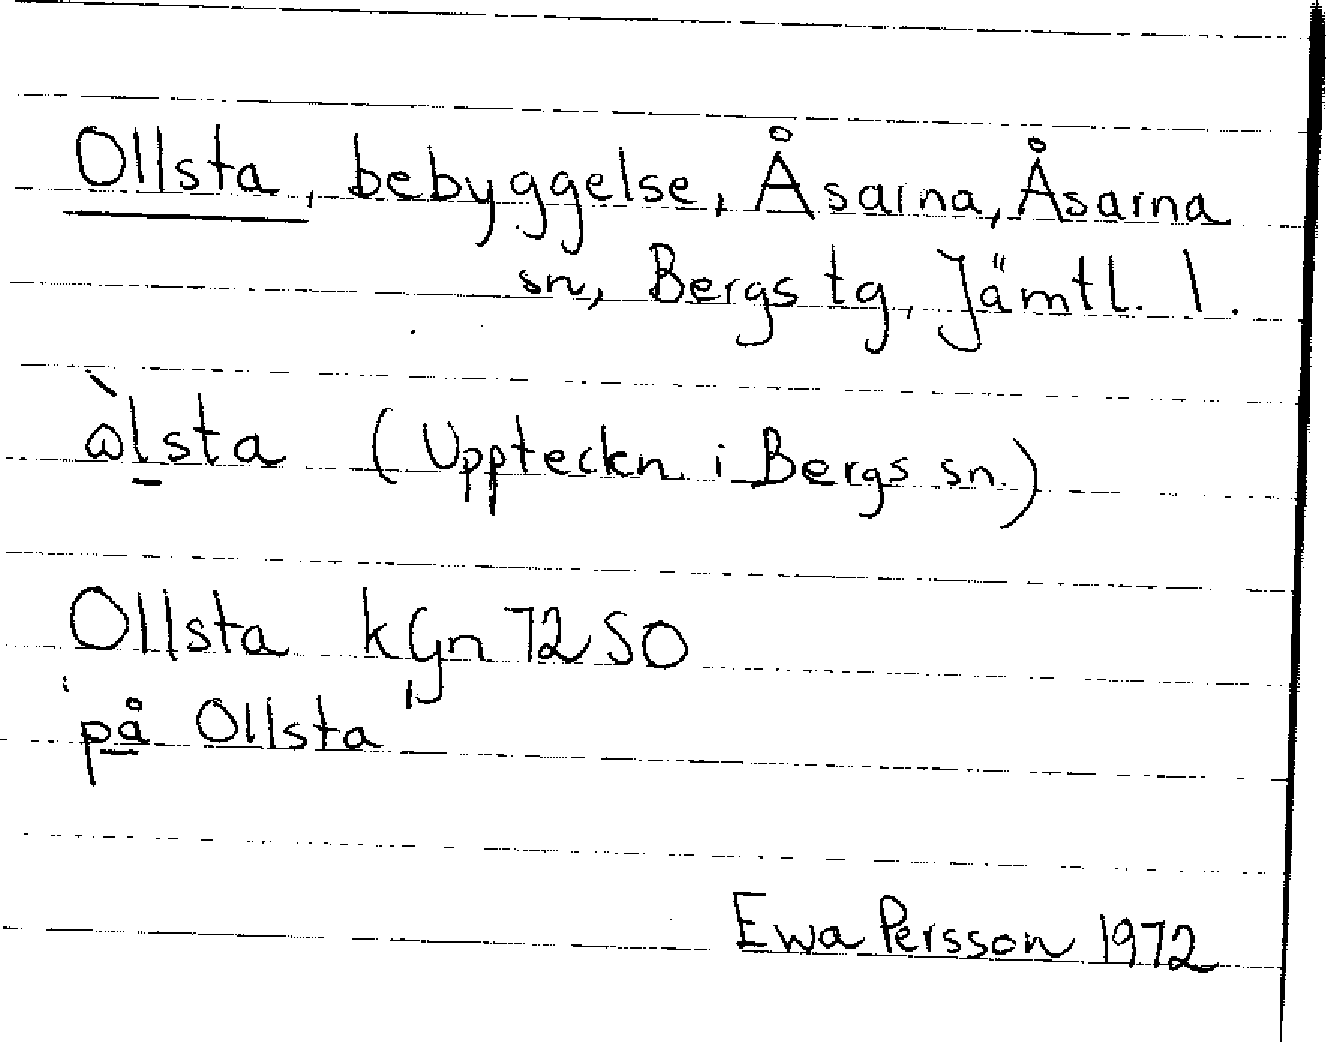 Ollsta, bebyggelse, Åsarna, Åsarna
sn, Bergs tg, Jämtl. l.
ὼl̠sta (Uppteckn i Bergs sn.)
Ollsta kGn 72 SO
"på Ollsta"
Ewa Persson 1972